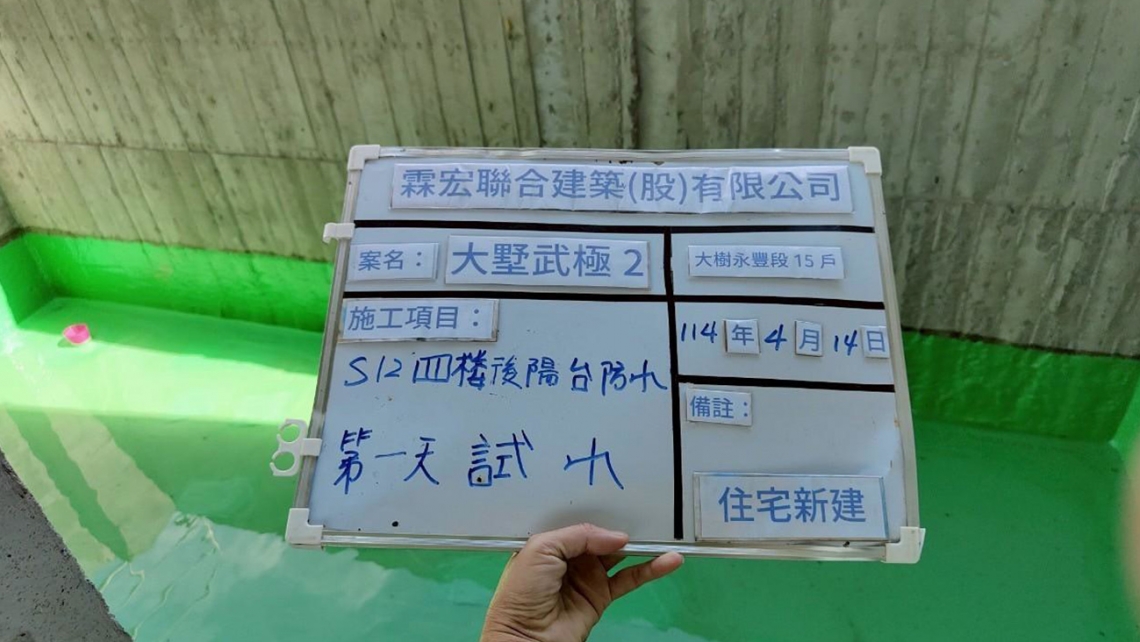 霖宏聯合建築(股)有限公司
案名： 大墅武極 2 大樹永豐段 15 戶
施工項目：
114 年 4 月 14 日
S12 四楼後陽台防水
備註：
第一天 試水
住宅新建